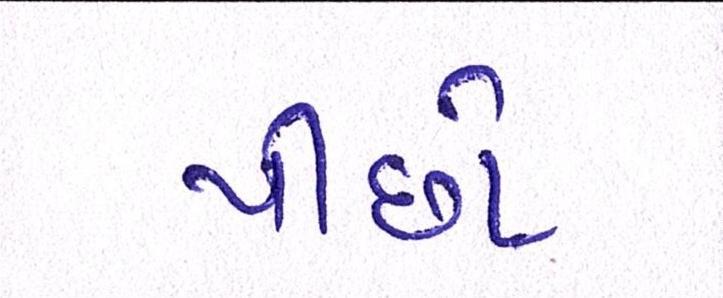 પીછો